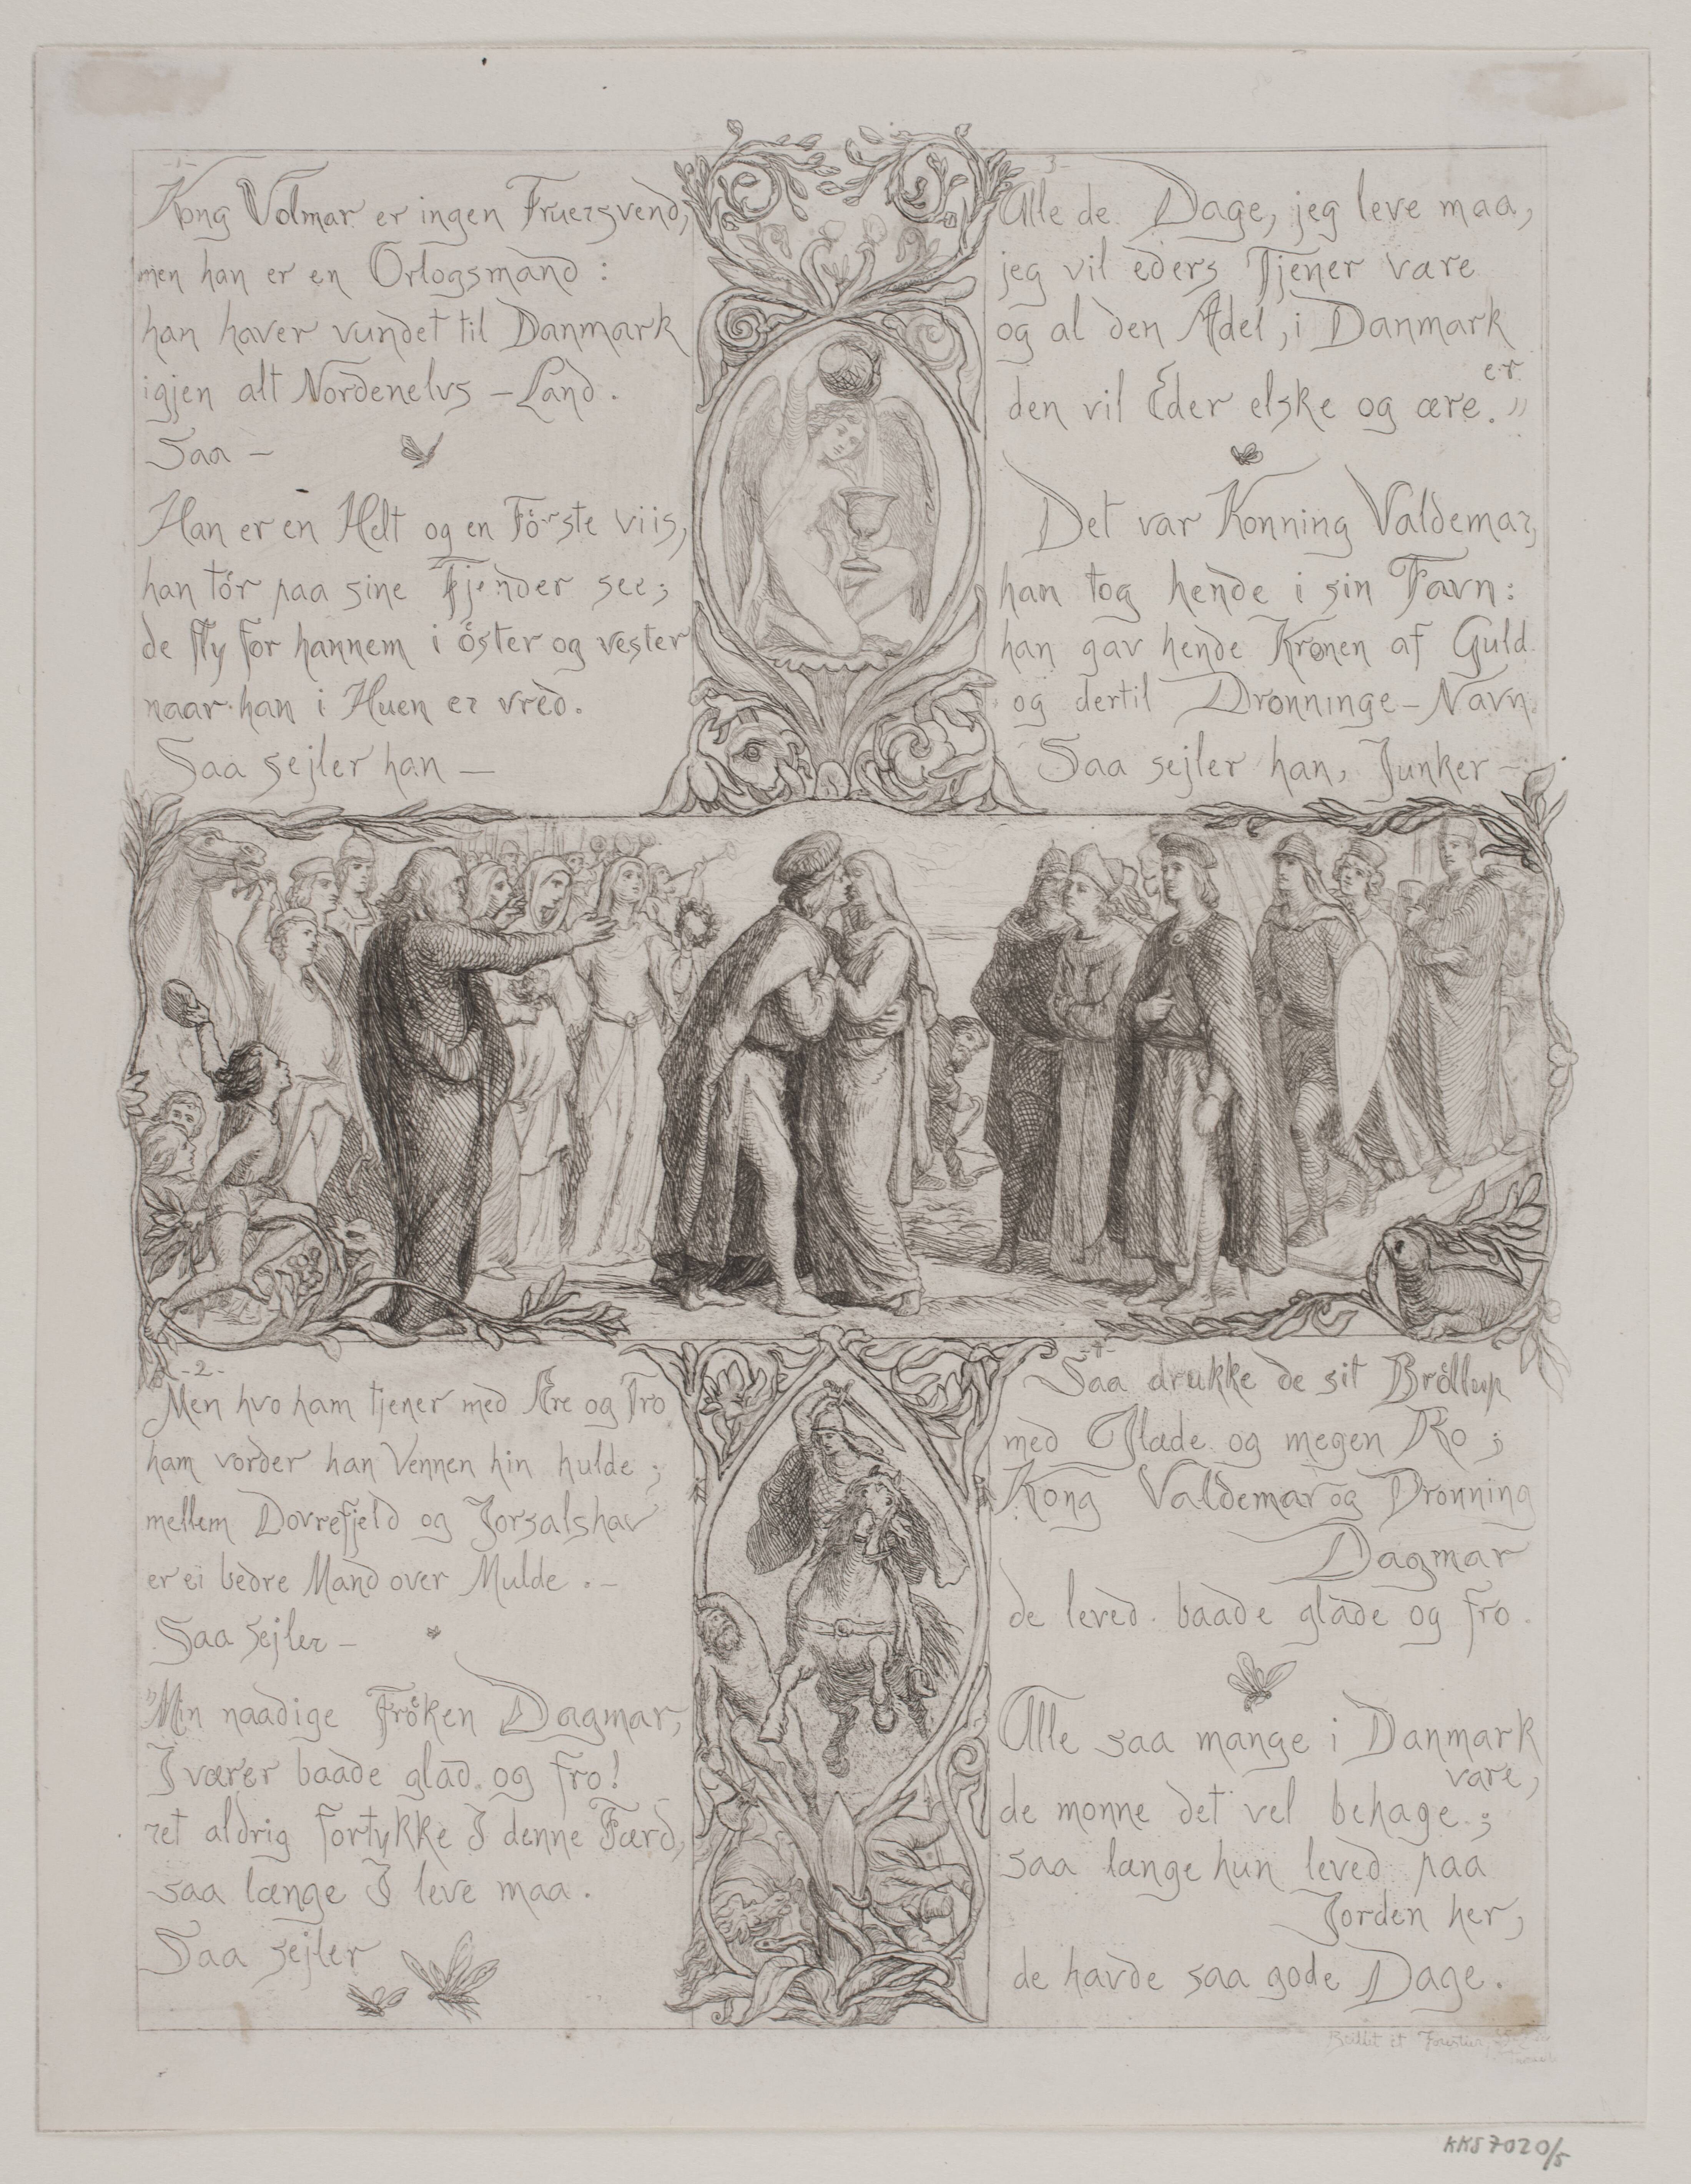 -1-
Kong Volmar er ingen Fruersvend,
men han er en Orlogsmand :
han haver vundet til Danmark
igjen alt Nordenelvs - Land.
Saa -
Han er en Helt og en Förste viis,
han tör paa sine Fjender see;
de fly for hannem i öster og vester
naar han i Huen er vred.
Saa sejler han -
-2-
Men hvo ham tjener med Ære og Tro
ham vorder han Vennen hin hulde ;
mellem Dovrefjeld og Jorsalshav
er ei bedre Mand over Mulde . -
Saa sejler -
"Min naadige Fröken Dagmar,
I værer baade glad og fro!
ret aldrig fortykke I denne Færd,
saa længe I leve maa.
Saa sejler
3-
Alle de Dage, jeg leve maa,
jeg vil eders Tjener være
og al den Adel, i Danmark
er
den vil Eder elske og ære."
Det var Konning Valdemar,
han tog hende i sin Favn:
han gav hende Kronen af Guld
og dertil Dronninge-Navn.
Saa sejler han, Junker -
-4-
Saa drukke de sit Bröllup
med Glæde og megen Ro ;
Kong Valdemar og Dronning
Dagmar
de leved baade glade og fro.
Alle saa mange i Danmark
vare,
de monne det vel behage ;
saa længe hun leved paa
Jorden her,
de havde saa gode Dage.
KKS7020/5